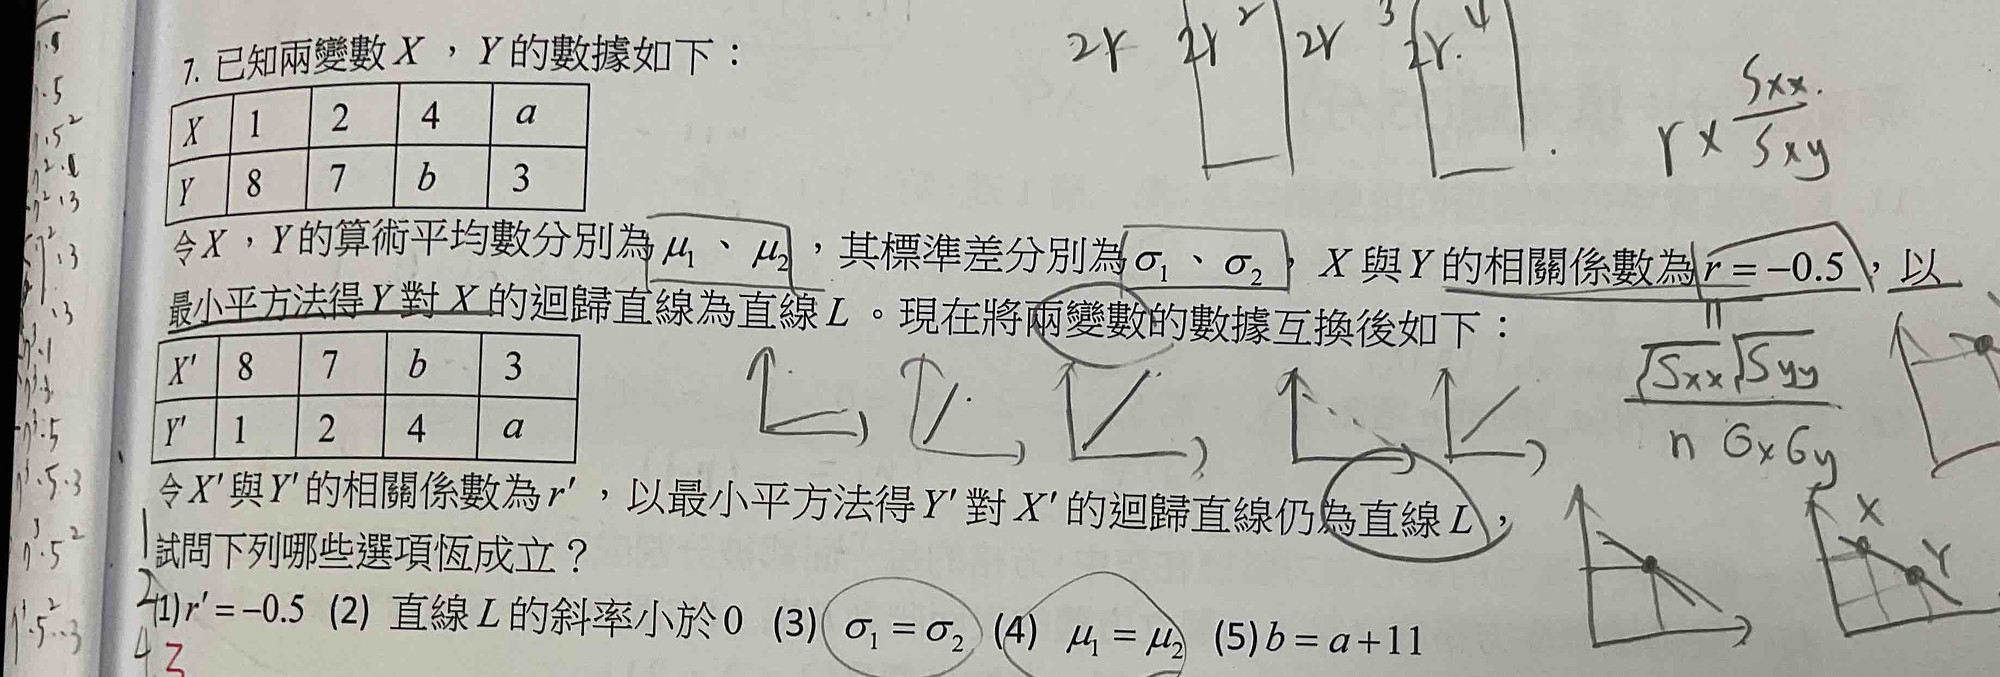 7. 已知兩變數 X ，Y 的數據如下：
X 1 2 4 a
Y 8 7 b 3
令 X ，Y 的算術平均數分別為 μ₁ 、 μ₂ ，其標準差分別為 σ₁ 、 σ₂ ， X 與 Y 的相關係數為 r = −0.5 ，以
最小平方法得 Y 對 X 的迴歸直線為直線 L 。現在將兩變數的數據互換後如下：
X′ 8 7 b 3
Y′ 1 2 4 a
令 X′ 與 Y′ 的相關係數為 r′ ，以最小平方法得 Y′ 對 X′ 的迴歸直線仍為直線 L ，
試問下列哪些選項恆成立？
(1) r′ = −0.5 (2) 直線 L 的斜率小於 0 (3) σ₁ = σ₂ (4) μ₁ = μ₂ (5) b = a + 11
2r 2r² 2r³ 2r⁴
r × Sxx / Sxy
√Sxx √Syy
n σx σy
X
Y
1
2
4
3